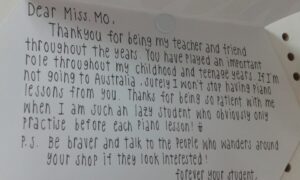 Dear Miss. Mo,
Thankyou for being my teacher and friend
throughout the years. You have played an important
role throughout my childhood and teenage years. If I'm
not going to Australia, surely I won't stop having piano
lessons from you. Thanks for being so patient with me
when I am such an lazy student who obviously only
practise before each piano lesson! #
P.S. Be braver and talk to the people who wanders around
your shop if they look interested!
forever your student,